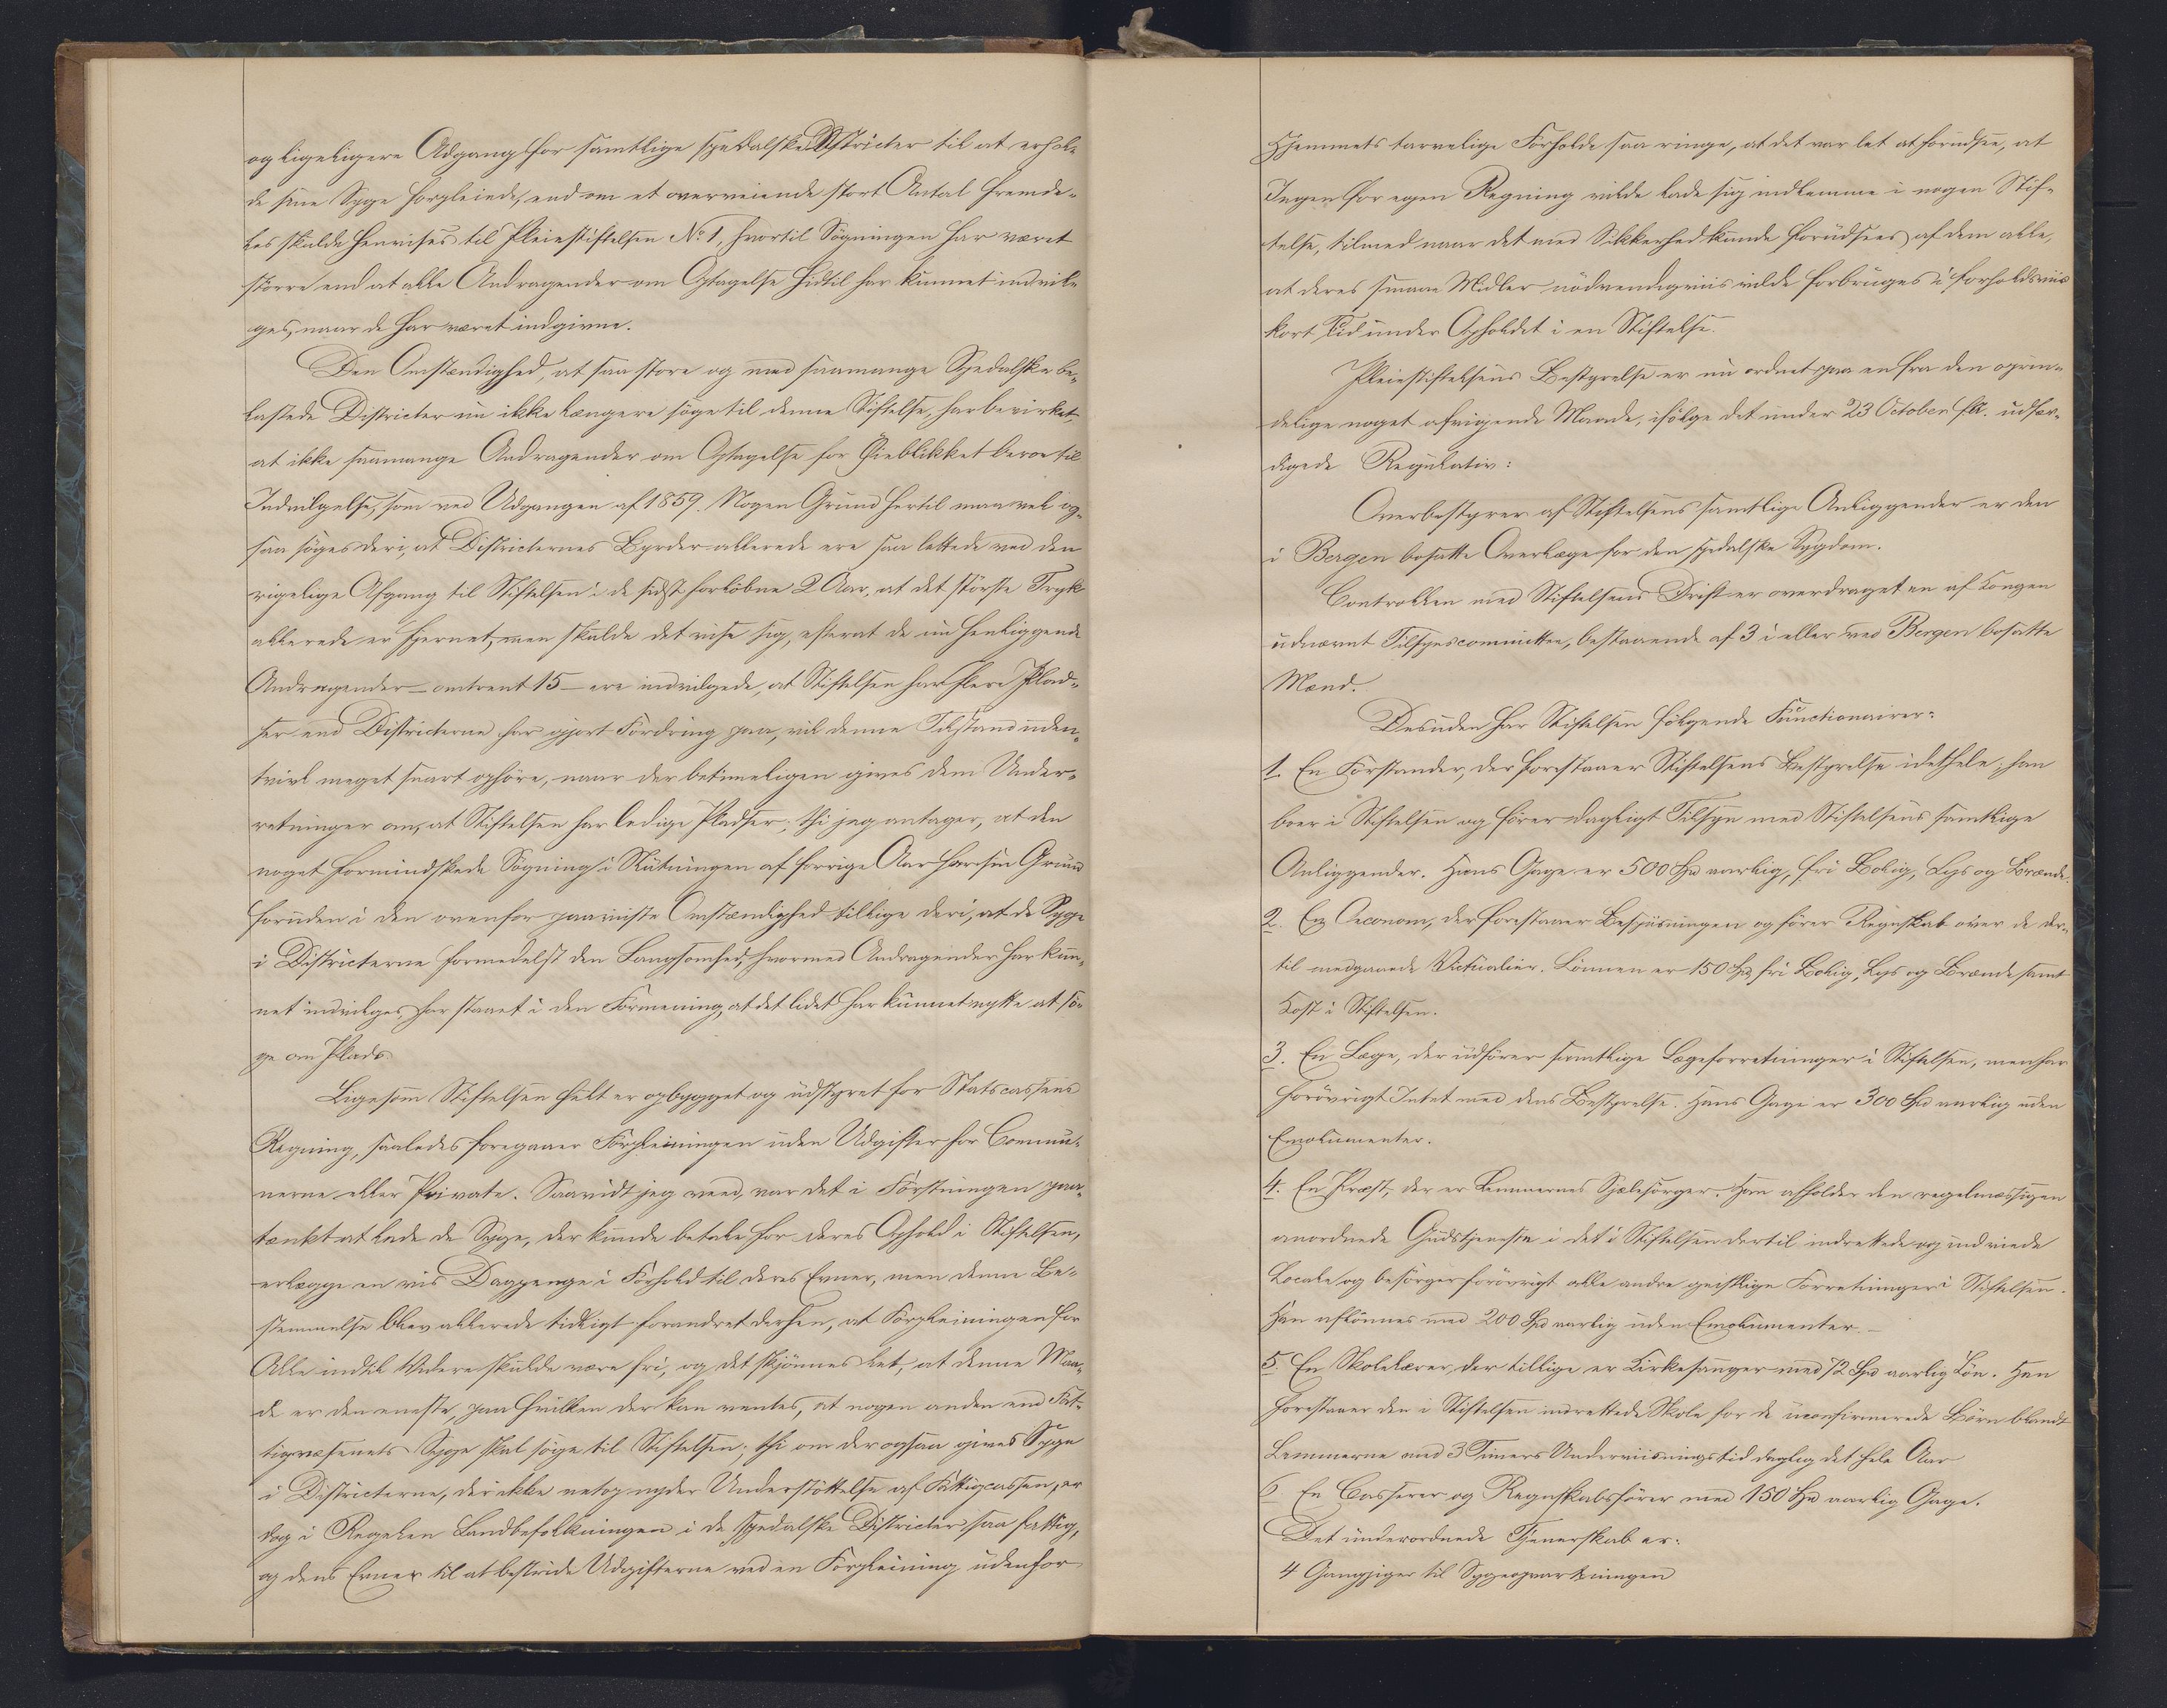 og ligeligere Adgang for samtlige spedalske Districter til at erhol-
de sine Syge forpleiede, end om et overveiende stort Antal fremde-
les skulde henvises til Pleiestiftelsen No 1, hvortil Søgningen har været
større end at alle Andragender om Optagelse hidtil har kunnet indvil-
ges, naar de har været indgivne.
Den Omstændighed, at saa store og med saamange Spedalske be-
lastede Districter nu ikke længere søge til denne Stiftelse, har bevirket,
at ikke saamange Andragender om Optagelse for Øieblikket beroe til
Indvilgelse, som ved Udgangen af 1859. Nogen Grund hertil maa vel og-
saa søges deri, at Districternes Byrder allerede ere saa lettede ved den
rigelige Afgang til Stiftelsen i de sidst forløbne 2 Aar, at det største Tryk
allerede er fjernet, men skulde det vise sig, efterat de nu henliggende
Andragender – omtrent 15 – ere indvilgede, at Stiftelsen har flere Plad-
ser end Districterne har gjort Fordring paa, vil denne Tilstand uden-
tvivl meget snart ophøre, naar der betimeligen gives dem Under-
retninger om, at Stiftelsen har ledige Pladser; thi jeg antager, at den
noget formindskede Søgning i Slutningen af forrige Aar har sin Grund
foruden i den ovenfor paaviiste Omstændighed tillige deri, at de Syge
i Districterne formedelst den Langsomhed, hvormed Andragender har kun-
net indvilges, har staaet i den Formening, at det lidet har kunnet nytte at sø-
ge om Plads.
Ligesom Stiftelsen helt er opbygget og udstyret for Statscassens
Regning, saaledes foregaaer Forpleiningen uden Udgifter for Commu-
nerne eller Private. Saavidt jeg veed, var det i Førstningen paa-
tænkt at lade de Syge, der kunde betale for deres Ophold i Stiftelsen,
erlægge en vis Dagpenge i Forhold til deres Evner, men denne Be-
stemmelse blev allerede tidligt forandret derhen, at Forpleiningen for
Alle indtil Videre skulde være fri, og det skjønnes let, at denne Maa-
de er den eneste, paa hvilken der kan ventes, at nogen anden end Fat-
tigvæsenets Syge skal søge til Stiftelsen; thi om der ogsaa gives Syge
i Districterne, der ikke netop nyder Understøttelse af Fattigcassen, er
dog i Regelen Landbefolkningen i de spedalske Districter saa fattig,
og dens Evner til at bestride Udgifterne ved en Forpleining udenfor
Hjemmets tarvelige Forholde saa ringe, at det var let at forudsee, at
Ingen for egen Regning vilde lade sig indlemme i nogen Stif-
telse, tilmed naar det med Sikkerhed kunde forudsees af dem alle,
at deres smaae Midler nødvendigviis vilde forbruges i forholdsviis
kort Tid under Opholdet i en Stiftelse.
Pleiestiftelsens Bestyrelse er nu ordnet paa en fra den oprin-
delige noget afvigende Maade, ifølge det under 23 October f.A. udfær-
digede Regulativ:
Overbestyrer af Stiftelsens samtlige Anliggender er den
i Bergen bosatte Overlæge for den spedalske Sygdom.
Controllen med Stiftelsens Drift er overdraget en af Kongen
udnævnt Tilsynscommittee, bestaaende af 3 i eller ved Bergen bosatte
Mænd.
Desuden har Stiftelsen følgende Functionairer:
1. En Forstander, der forestaaer Stiftelsens Bestyrelse idethele; han
boer i Stiftelsen og fører dagligt Tilsyn med Stiftelsens samtlige
Anliggender. Hans Gage er 500 Spd aarlig, fri Bolig, Lys og Brænde.
2. En Oeconom, der forestaaer Bespiisningen og fører Regnskab over de der-
til medgaaede Victualier. Lønnen er 150 Spd, fri Bolig, Lys og Brænde samt
Kost i Stiftelsen.
3. En Læge, der udfører samtlige Lægeforretninger i Stiftelsen, men har
forøvrigt Intet med dens Bestyrelse. Hans Gage er 300 Spd aarlig uden
Emolumenter.
4. En Præst, der er Lemmernes Sjælesørger. Han afholder den regelmæssigen
anordnede Gudstjeneste i det i Stiftelsen dertil indrettede og indviede
Locale og besørger forøvrigt alle andre geistlige Forretninger i Stiftelsen.
Han aflønnes med 200 Spd aarlig uden Emolumenter. –
5. En Skolelærer, der tillige er Kirkesanger med 72 Spd aarlig Løn. Han
forestaaer den i Stiftelsen indrettede Skole for de uconfirmerede Børn blandt
Lemmerne med 3 Timers Underviisningstid daglig det hele Aar
6 En Casserer og Regnskabsfører med 150 Spd aarlig Gage.
Det underordnede Tjenerskab er:
4 Gangpiger til Sygeopvartningen